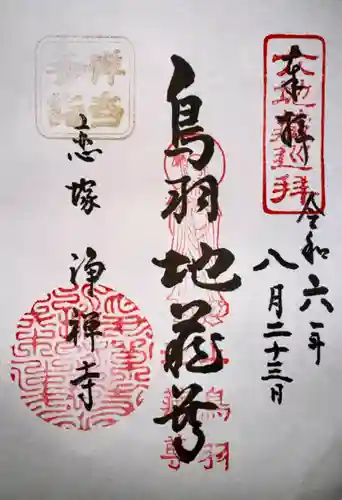 奉拝
令和六年
八月二十三日
六地蔵巡拝
鳥羽地蔵尊
鳥羽
恋塚 浄禅寺